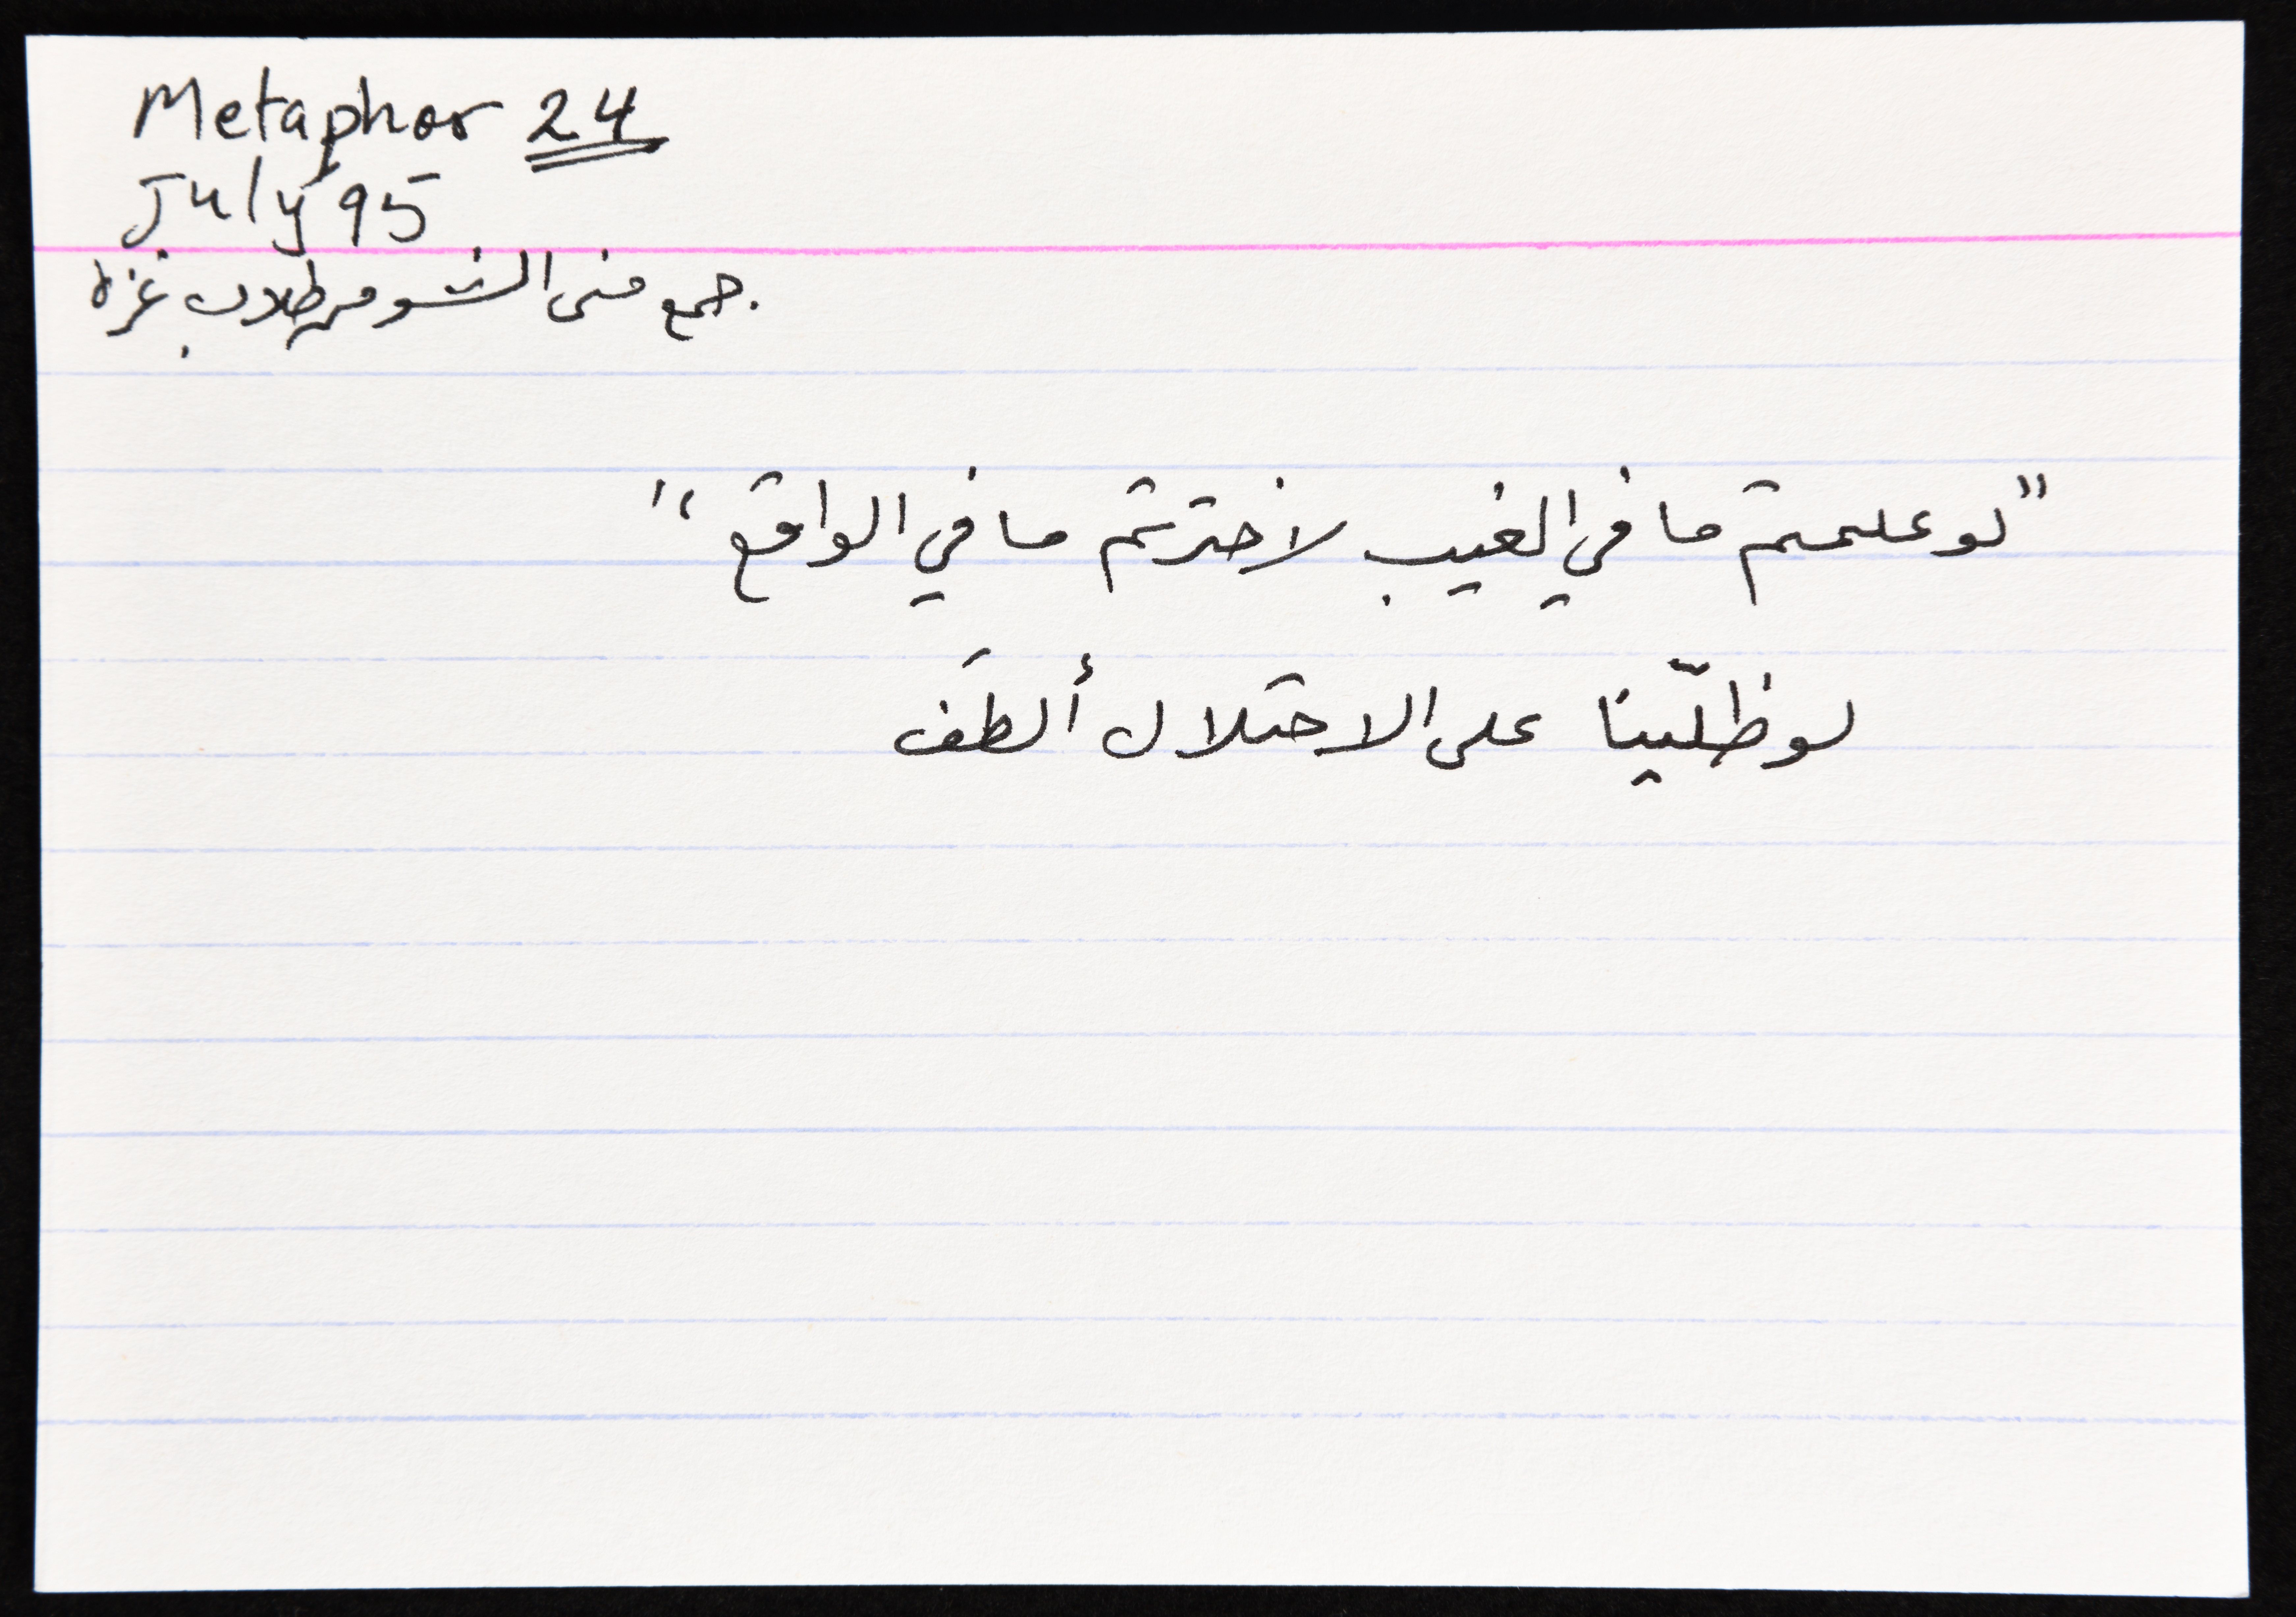 Metaphor 24
July 95
جمع منى الشو من طلاب غزة
"لو علمتم ما في الغيب لاخترتم ما في الواقع"
لو ظلّينا على الاحتلال ألطَف